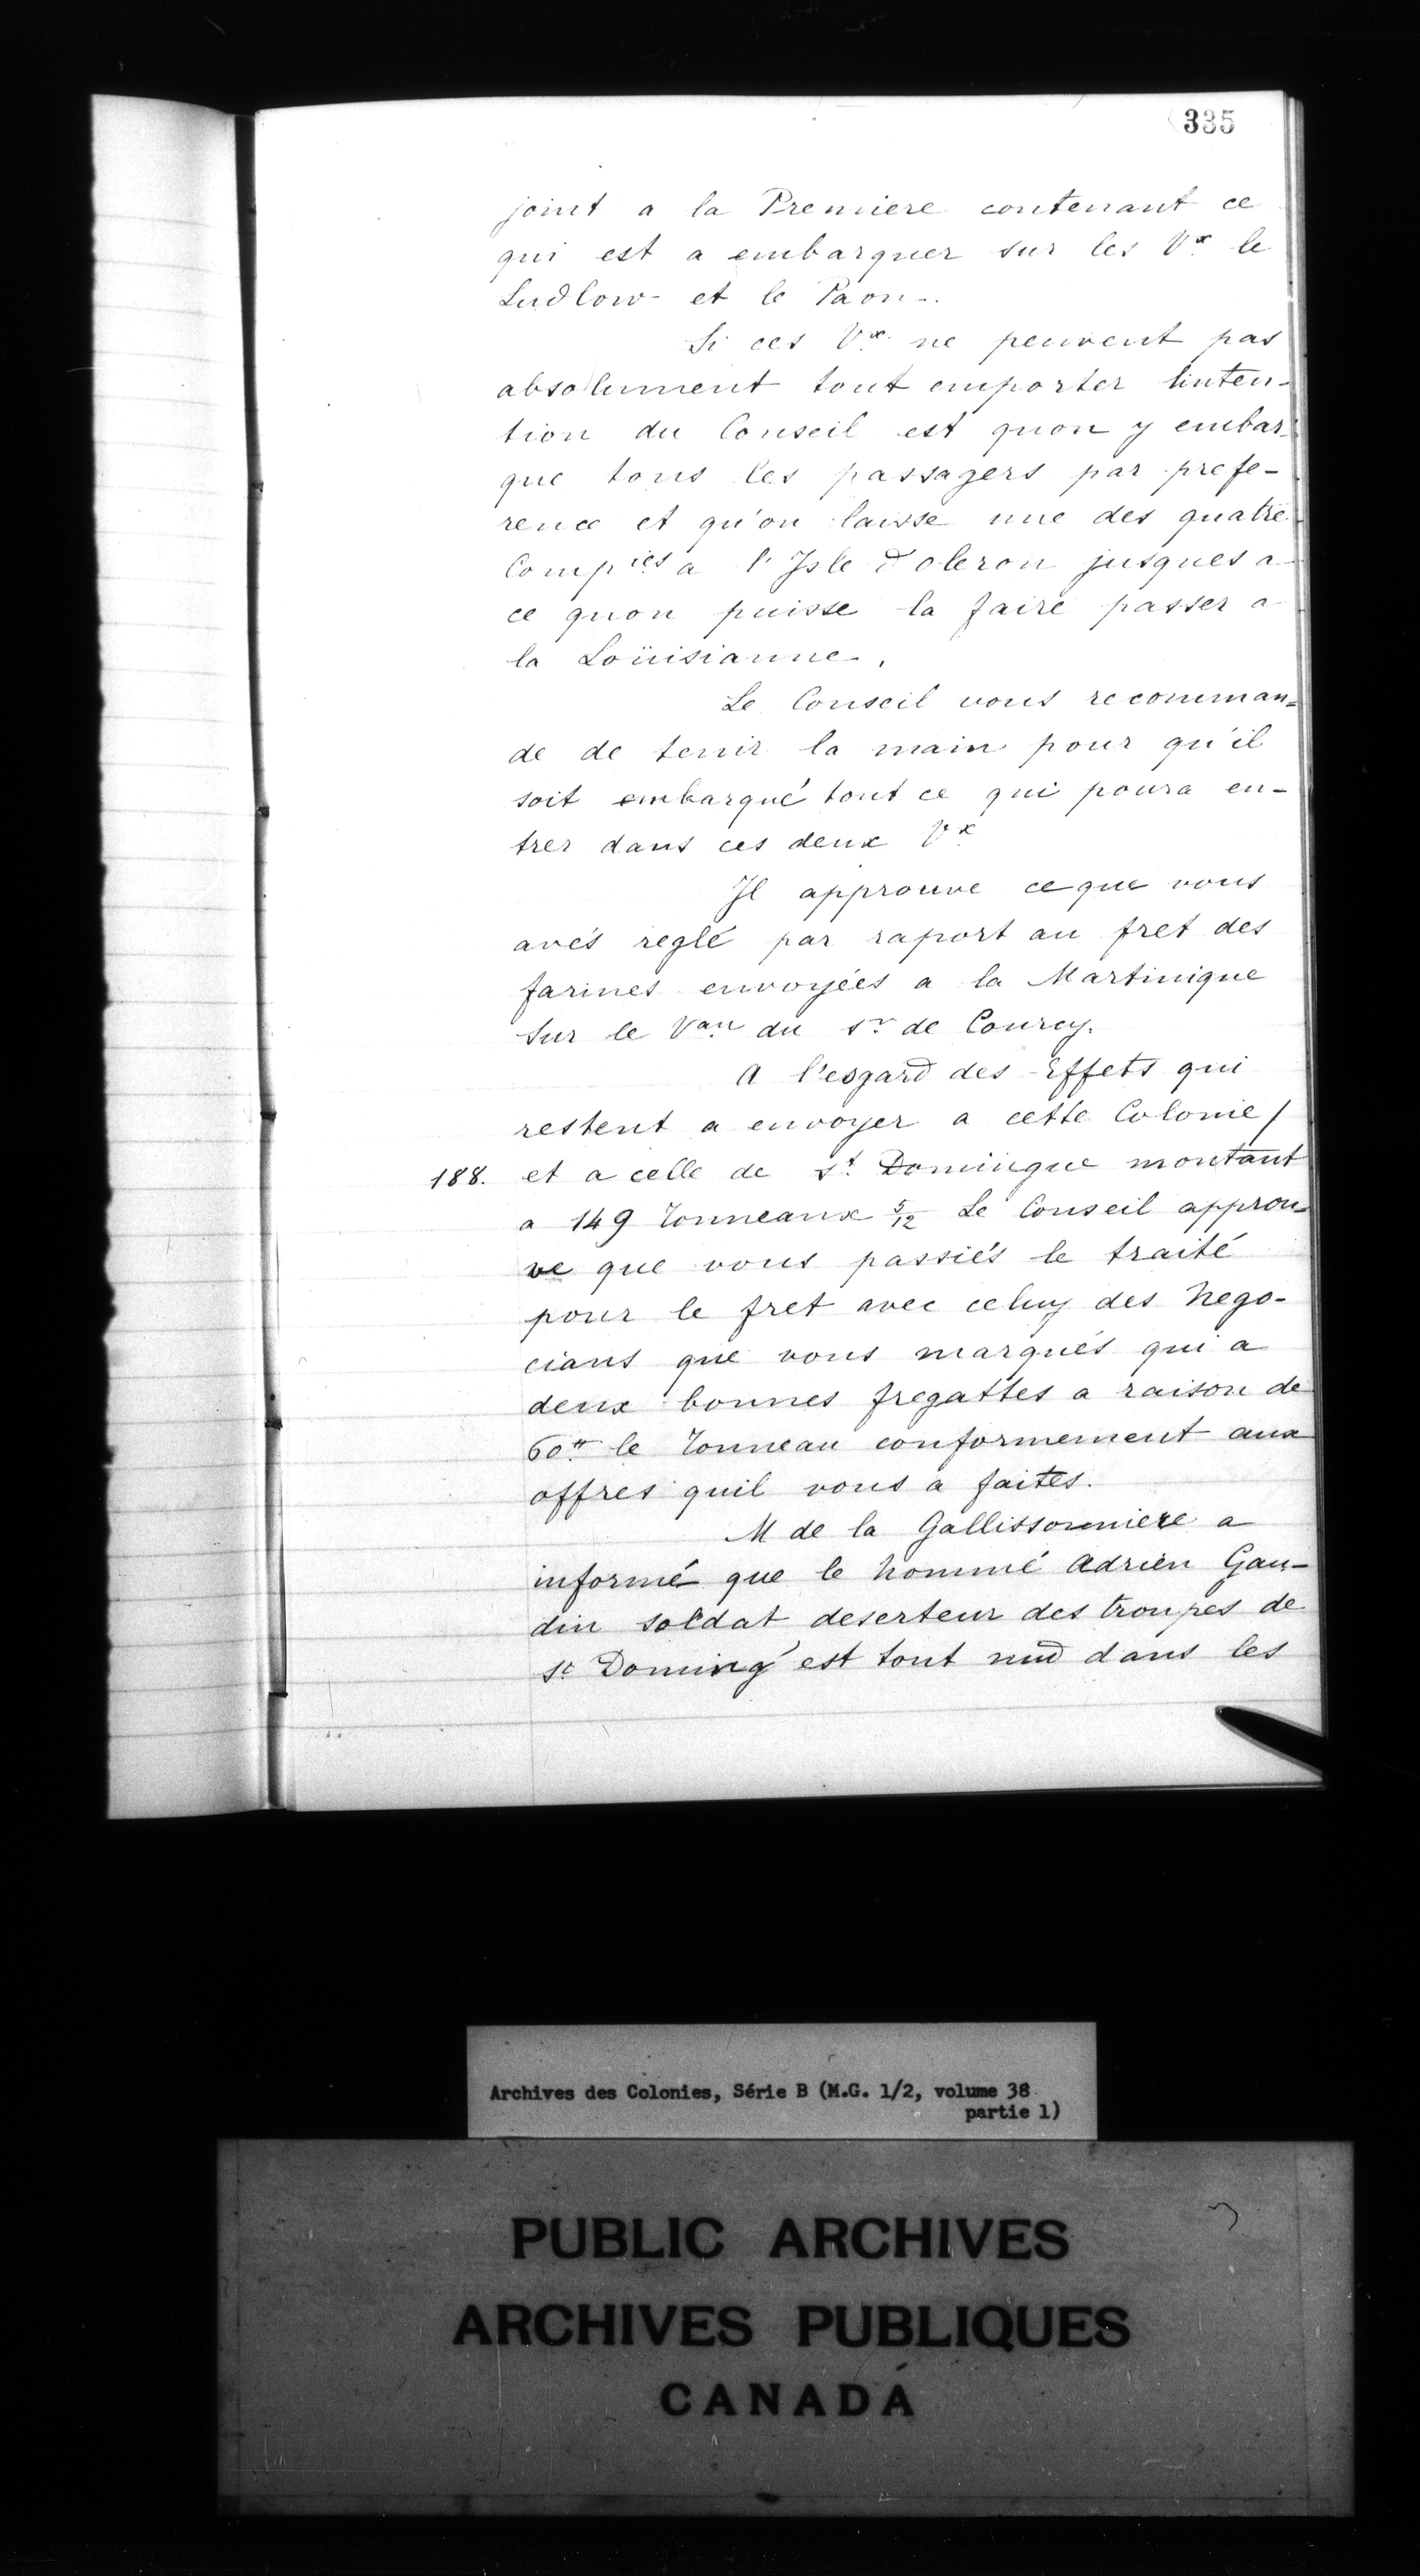 335
joint a la Premiere contenant ce
qui est a embarquer sur les Vx le
Ludlow et le Paon.
Si ces Vx ne peuvent pas
absolument tout emporter linten-
tion du Conseil est quon y embar-
que tous les passagers par prefe-
rence et qu'on laisse une des quatre
Compies a l'Isle d'oleron jusques a
ce quon puisse la faire passer a
la Loüisianne.
Le Conseil vous recomman=
de de tenir la main pour qu'il
soit embarqué tout ce qui poura en-
trer dans ces deux Vx
Il approuve ce que vous
avés reglé par raport au fret des
farines envoyées a la Martinique
Sur le Vau du sr de Courcy.
A l'esgard des Effets qui
restent a envoyer a cette Colonie /
188. et a celle de St Domingue montant
a 149 Tonneaux 5/12 Le Conseil approu-
ve que vous passiés le traité
pour le fret avec celuy des Nego-
cians que vous marqués qui a
deux bonnes fregattes a raison de
60tt le Tonneau conformement aux
offres quil vous a faites.
M de la Gallissonniere a
informé que le nommé Adrien Gau-
din soldat deserteur des troupes de
St Doming' est tout nud dans les
Archives des Colonies, Série B (M.G. 1/2, volume 38
partie 1)
PUBLIC ARCHIVES
ARCHIVES PUBLIQUES
CANADA